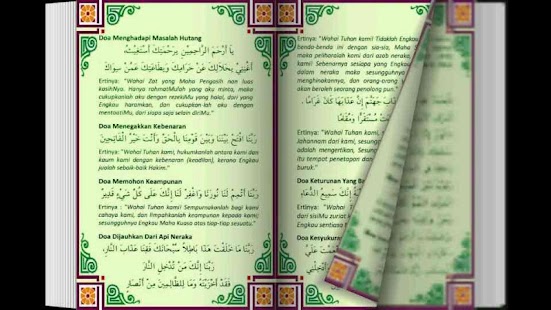 Doa Menghadapi Masalah Hutang
يَا أَرْحَمَ الرَّاحِمِيْنَ بِرَحْمَتِكَ أَسْتَغِيْثُ،
أَغْنِنِيْ بِحَلَالِكَ عَنْ حَرَامِكَ وَبِطَاعَتِكَ عَمَّنْ سِوَاكَ
Ertinya: "Wahai Zat yang Maha Pengasih nan luas
kasihNya. Hanya rahmatMulah yang aku minta, maka
cukupkanlah aku dengan rezekiMu yang halal, dari yang
Engkau haramkan, dan cukupkan-lah aku dengan
mentaatiMu, dari siapa saja selain diriMu."
Doa Menegakkan Kebenaran
رَبَّنَا افْتَحْ بَيْنَنَا وَبَيْنَ قَوْمِنَا بِالْحَقِّ وَأَنْتَ خَيْرُ الْفَاتِحِيْنَ
Ertinya: "Wahai Tuhan kami, hukumkanlah antara kami dan
kaum kami dengan kebenaran (keadilan), kerana Engkau
jualah sebaik-baik Hakim."
Doa Memohon Keampunan
رَبَّنَا أَتْمِمْ لَنَا نُوْرَنَا وَاغْفِرْ لَنَا إِنَّكَ عَلَى كُلِّ شَيْءٍ قَدِيْرٌ
Ertinya : "Wahai Tuhan kami! Sempurnakanlah bagi kami
cahaya kami, dan limpahkanlah keampunan kepada kami;
sesungguhnya Engkau Maha Kuasa atas tiap-tiap sesuatu".
Doa Dijauhkan Dari Api Neraka
رَبَّنَا مَا خَلَقْتَ هَذَا بَاطِلاً سُبْحَانَكَ فَقِنَا عَذَابَ النَّارِ،
رَبَّنَا إِنَّكَ مَنْ تُدْخِلِ النَّارَ
فَقَدْ أَخْزَيْتَهُ وَمَا لِلظَّالِمِيْنَ مِنْ أَنْصَارٍ
Ertinya: "Wahai Tuhan kami! Tidaklah Engkau
benda-benda ini dengan sia-sia, Maha S
maka peliharalah kami dari azab neraka
kami! Sebenarnya sesiapa yang Engkau
dalam neraka maka sesungguhnya
menghinakannya, dan orang-orang yang
akan beroleh seorang penolong pun."
عَذَابَ جَهَنَّمَ إِنَّ عَذَابَهَا كَانَ غَرَامًا .
مُسْتَقَرًّا وَمُقَامًا
Ertinya: "Wahai Tuhan kami,
Jahannam dari kami, sesungguh
adalah mengertikan, Sesungg
itu tempat penetapan dan
Doa Keturunan Yang Ba
إِنَّكَ سَمِيعُ الدُّعَاءِ
Ertinya: "Wahai Tuhan
dari sisiMu zuriat
Engkau sentiasa
Doa Kesyukuran